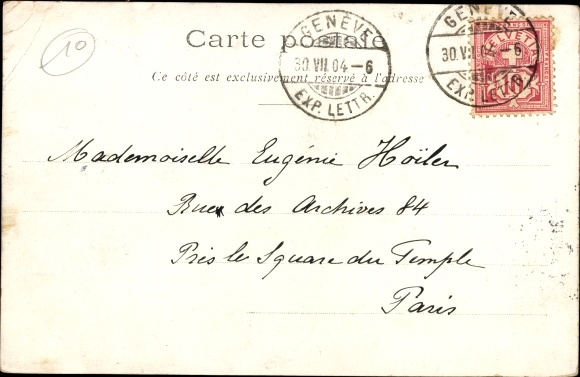 10
Carte postale
Ce côté est exclusivement réservé à l'adresse
GENÈVE
30.VII.04-6
EXP. LETTR.
GENÈVE
30.VII.04-6
EXP. LETTR.
HELVETIA
10
Mademoiselle Eugénie Hoïler
Rue des Archives 84
Près le Square du Temple
Paris